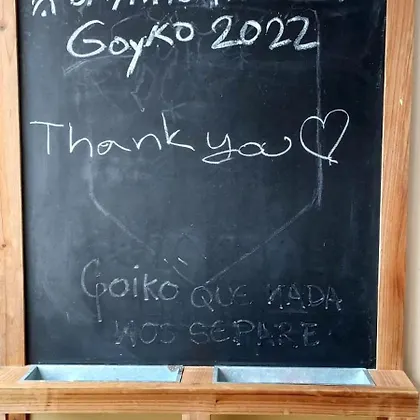 Goyko 2022
Thank you
Goiko QUE NADA
NOS SEPARE